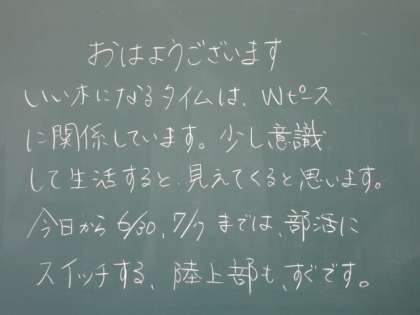 おはようございます
いい木になるタイムは、Wピース
に関係しています。少し意識
して生活すると、見えてくると思います。
今日から6/30、7/7までは、部活に
スイッチする、陸上部も、すぐです。